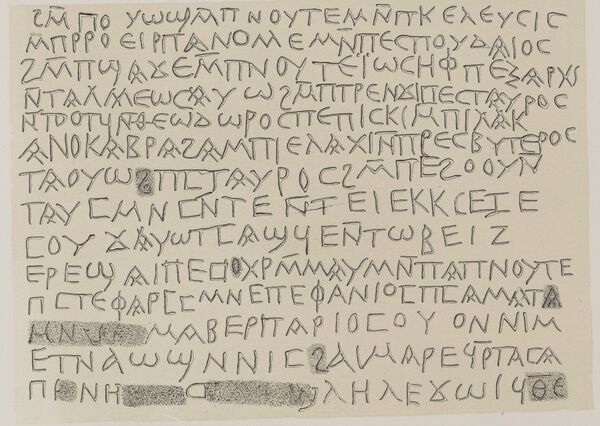 ϩⲙ ⲡⲟⲩⲱϣⲙⲡⲛⲟⲩⲧⲉⲙⲛⲡⲕⲉⲗⲉⲩⲥⲓⲥ
ⲙⲡⲣⲣⲟⲉⲓⲣⲡⲁⲛⲟⲙⲉⲙⲛⲡⲉⲥⲡⲟⲩⲇⲁⲓⲟⲥ
ϩⲙⲡϣⲁϫⲉⲙⲡⲛⲟⲩⲧⲉⲓⲱⲥⲏⲫⲡⲉⲝⲁⲣⲭⲥ
ⲛⲧⲁⲗⲙⲉⲱⲥⲁⲩⲱϩⲙⲡⲧⲣⲉⲛϫⲓⲡⲉⲥⲧⲁⲩⲣⲟⲥ
ⲛⲧⲟⲧϥⲛⲑⲉⲱⲇⲱⲣⲟⲥⲡⲉⲡⲓⲥⲕⲙⲡⲓⲗⲁⲕ
ⲁⲛⲟⲕⲁⲃⲣⲁϩⲁⲙⲡⲓⲉⲗⲁⲭⲓⲙⲡⲣⲉⲥⲃⲩⲧⲉⲣⲟⲥ
ⲧⲁⲟⲩⲱϩⲡⲥⲧⲁⲩⲣⲟⲥϩⲙⲡⲉϩⲟⲟⲩⲛ
ⲧⲁⲩⲥⲙⲛⲥⲛⲧⲉⲛⲧⲉⲓⲉⲕⲕⲥⲉⲓⲉ
ⲥⲟⲩϫⲁⲩⲱⲧⲥⲁϣϥⲉⲛⲧⲱⲃⲉⲓⲍ
ⲉⲣⲉϣⲁⲓⲡⲉⲥⲟⲭⲣⲙⲙⲁⲩⲙⲛⲡⲁⲡⲛⲟⲩⲧⲉ
ⲡⲥⲧⲉⲫⲁⲣⲥⲥⲙⲛⲉⲡⲉⲫⲁⲛⲓⲟⲥⲡⲥⲁⲙⲁⲧⲁ
ⲙⲁⲃⲉⲣⲓⲧⲁⲣⲓⲟⲥⲟⲩⲟⲛⲛⲓⲙ
ⲉⲧⲛⲁⲱϣⲛⲛⲓⲥϩⲁⲓⲙⲁⲣⲉϥⲣⲧⲁⲅⲁ
ⲡⲏ ϣⲗⲏⲗⲉϫⲱⲓϥⲑ